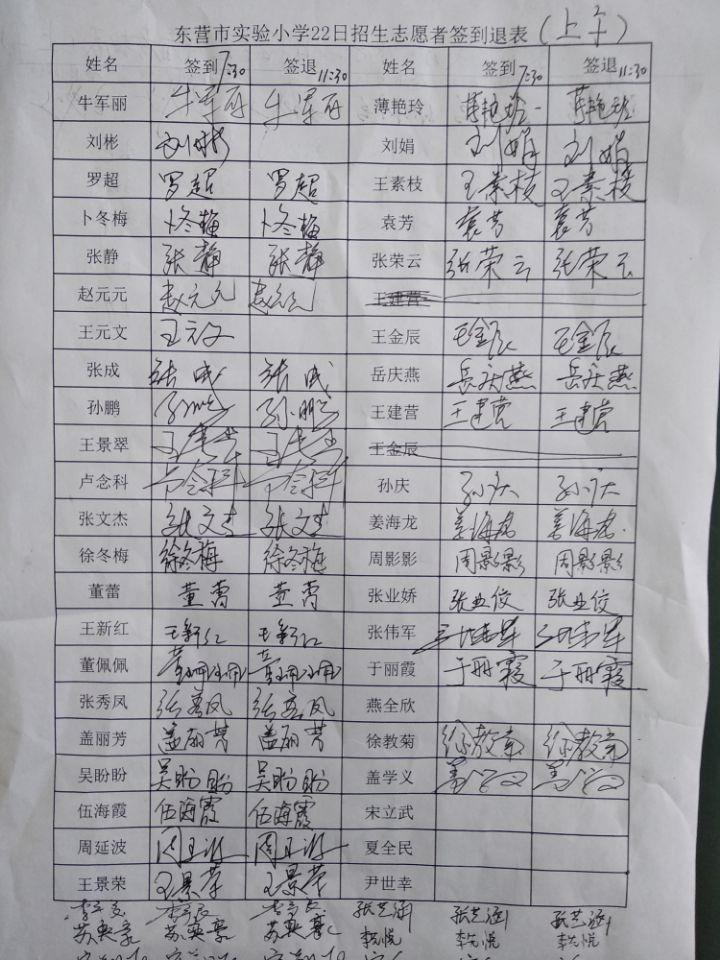 东营市实验小学22日招生志愿者签到退表(上午)
姓名 签到7:30 签退11:30 姓名 签到7:30 签退11:30
牛军丽 牛军丽 牛军丽 薄艳玲 薄艳玲 薄艳玲
刘彬 刘彬 刘娟 刘娟 刘娟
罗超 罗超 罗超 王素枝 王素枝 王素枝
卜冬梅 卜冬梅 卜冬梅 袁芳 袁芳 袁芳
张静 张静 张静 张荣云 张荣云 张荣云
赵元元 赵元元 赵元元 王建营
王元文 王元文 王金辰 王金辰 王金辰
张成 张成 张成 岳庆燕 岳庆燕 岳庆燕
孙鹏 孙鹏 孙鹏 王建营 王建营 王建营
王景翠 王金辰
卢念科 卢念科 卢念科 孙庆 孙庆 孙庆
张文杰 张文杰 张文杰 姜海龙 姜海龙 姜海龙
徐冬梅 徐冬梅 徐冬梅 周影影 周影影 周影影
董蕾 董蕾 董蕾 张业娇 张业娇 张业娇
王新红 王新红 王新红 张伟军 张伟军 张伟军
董佩佩 董佩佩 董佩佩 于丽霞 于丽霞 于丽霞
张秀凤 张秀凤 张秀凤 燕全欣
盖丽芳 盖丽芳 盖丽芳 徐教菊 徐教菊 徐教菊
吴盼盼 吴盼盼 吴盼盼 盖学义 盖学义 盖学义
伍海霞 伍海霞 伍海霞 宋立武
周延波 周延波 周延波 夏全民
王景荣 王景荣 王景荣 尹世幸
张艺涵 张艺涵 张艺涵
苏英豪 苏英豪 苏英豪 李悦 李悦 李悦